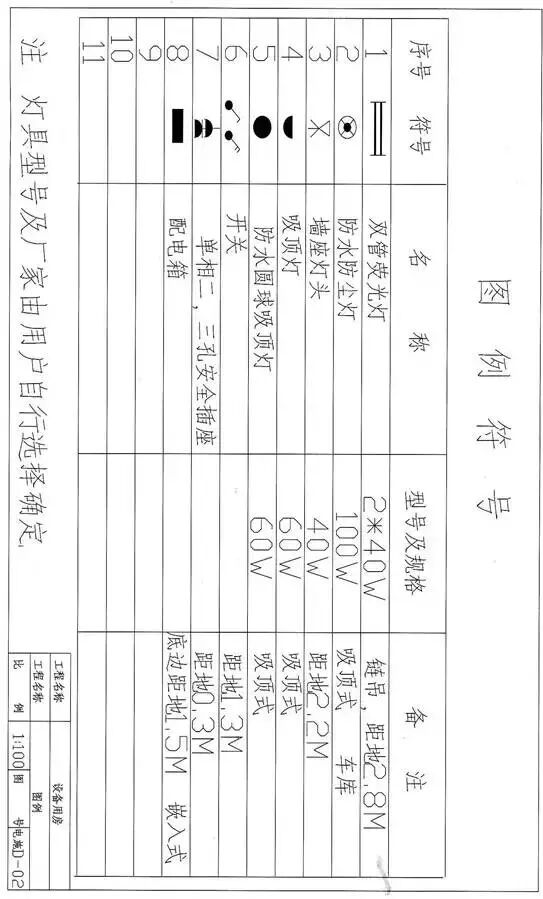 图 例 符 号
序号 符号 名 称 型号及规格 备 注
1 双管荧光灯 2*40W 链吊，距地2,8M
2 防水防尘灯 100W 吸顶式 车库
3 墙座灯头 40W 距地2,2M
4 吸顶灯 60W 吸顶式
5 防水圆球吸顶灯 60W 吸顶式
6 开关 距地1,3M
7 单相二，三孔安全插座 距地0,3M
8 配电箱 底边距地1,5M 嵌入式
9
10
11
注 灯具型号及厂家由用户自行选择确定.
工程名称 设备用房
工程名称 图例
比 例 1:100 图 号 电施D-02